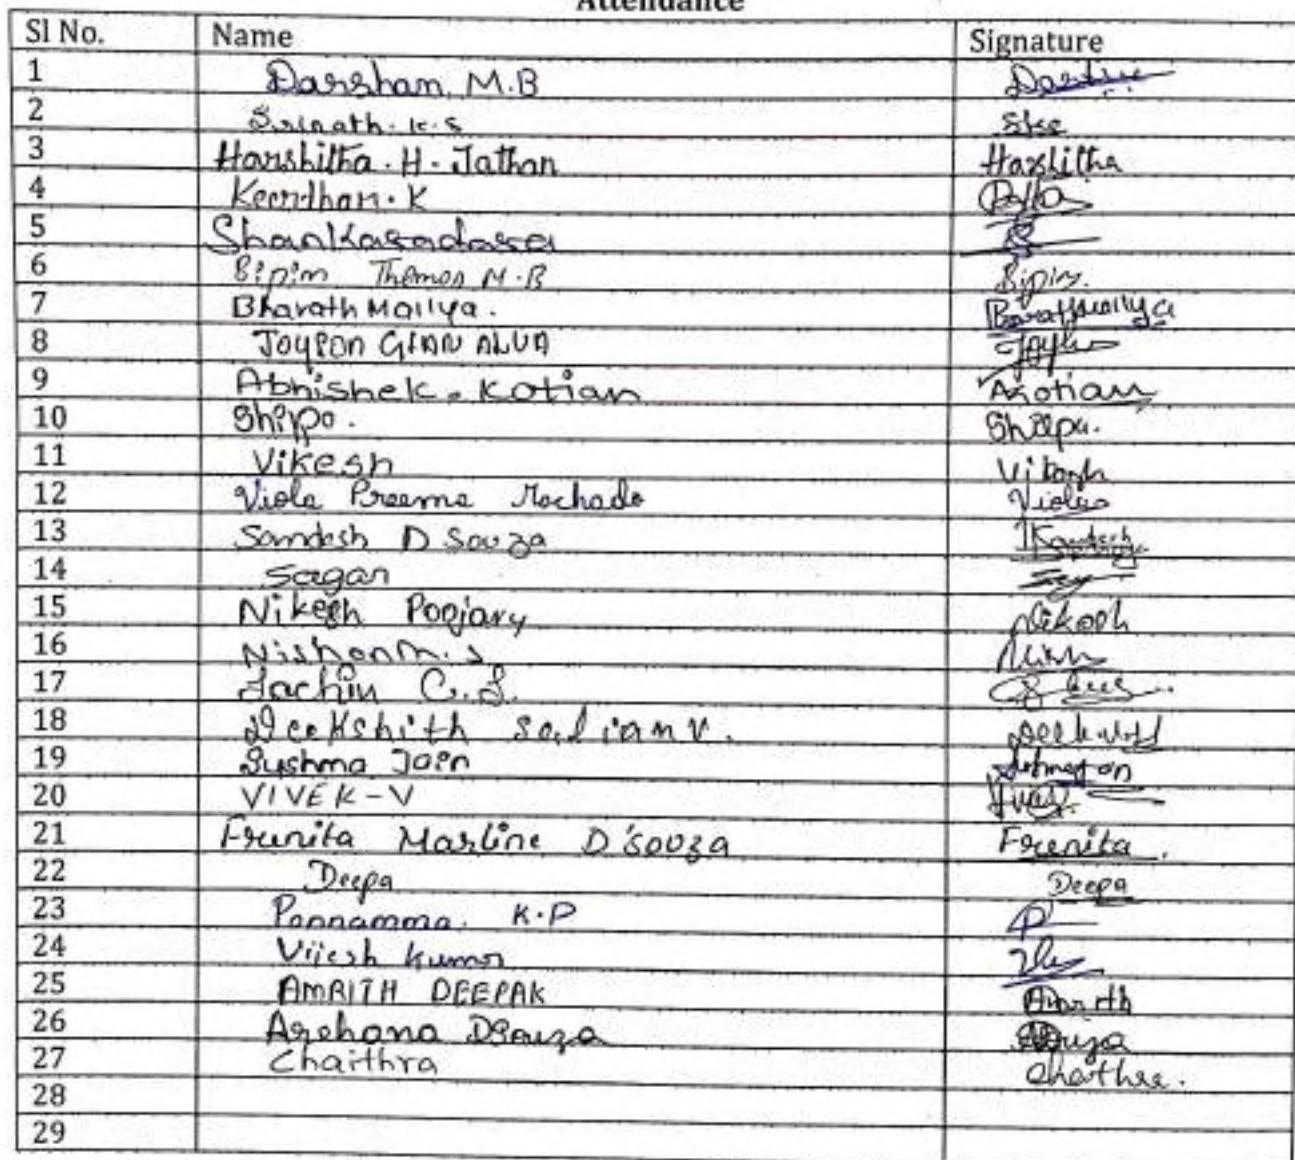 Attendance
Sl No. Name Signature
1 Darshan M.B
2 Srinath. K.S
3 Harshitha. H. Jathan Harshitha
4 Keerthan. K
5 Shankaradasa
6 Bipin Thomas M.B Bipin.
7 Bharath Mallya. Barathmallya
8 JOYSON GIAN ALVA
9 Abhishek. Kotian AKotian
10 Shilpa. Shilpa.
11 Vikesh Vikesh
12 Viola Preema Machado Viola
13 Sandesh D Souza
14 Sagar
15 Nikesh Poojary Nikesh
16 Nishan M. S
17 Sachin C. S.
18 Deekshith Salian V.
19 Sushma Jain
20 VIVEK-V
21 Frenita Marline D'souza Frenita.
22 Deepa Deepa
23 Ponnamma. K.P
24 Vijesh Kumar
25 AMRITH DEEPAK Amrith
26 Archana DSouza
27 Chaithra Chaithra.
28
29